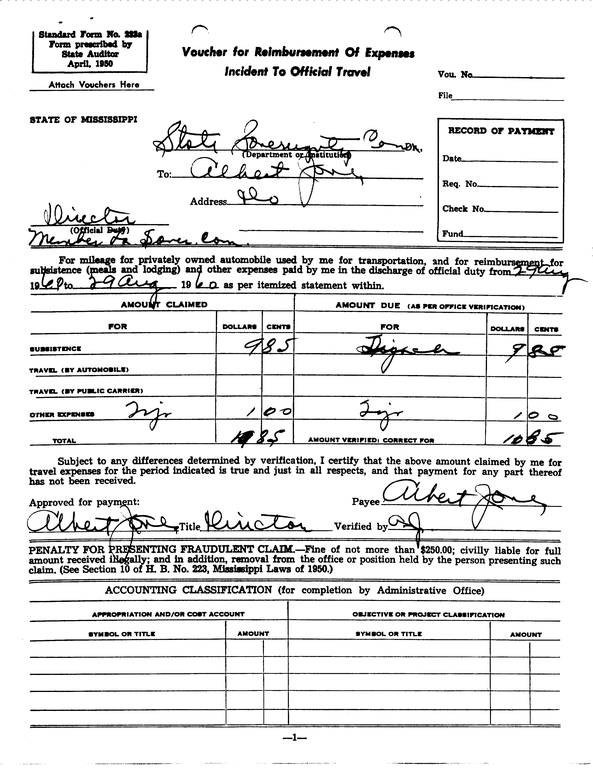 Standard Form No. 222a
Form prescribed by
State Auditor
April, 1950
Attach Vouchers Here
Voucher for Reimbursement Of Expenses
Incident To Official Travel
Vou. No.
File
STATE OF MISSISSIPPI
State Sovereignty Comm.
(Department or Institution)
To: Albert Jones
Address
Director
(Official Duty)
Member La Sover. Com.
RECORD OF PAYMENT
Date
Req. No.
Check No.
Fund
For mileage for privately owned automobile used by me for transportation, and for reimbursement for
subsistence (meals and lodging) and other expenses paid by me in the discharge of official duty from 29 Aug
1960 to 29 Aug 1960 as per itemized statement within.
AMOUNT CLAIMED AMOUNT DUE (AS PER OFFICE VERIFICATION)
FOR DOLLARS CENTS FOR DOLLARS CENTS
SUBSISTENCE 9 85 9 85
TRAVEL (BY AUTOMOBILE)
TRAVEL (BY PUBLIC CARRIER)
OTHER EXPENSES 1 00 1 00
TOTAL 10 85 AMOUNT VERIFIED: CORRECT FOR 10 85
Subject to any differences determined by verification, I certify that the above amount claimed by me for
travel expenses for the period indicated is true and just in all respects, and that payment for any part thereof
has not been received.
Approved for payment: Payee Albert Jones
Albert Jones Title Director Verified by AJ
PENALTY FOR PRESENTING FRAUDULENT CLAIM.—Fine of not more than $250.00; civilly liable for full
amount received illegally; and in addition, removal from the office or position held by the person presenting such
claim. (See Section 10 of H. B. No. 223, Mississippi Laws of 1950.)
ACCOUNTING CLASSIFICATION (for completion by Administrative Office)
APPROPRIATION AND/OR COST ACCOUNT OBJECTIVE OR PROJECT CLASSIFICATION
SYMBOL OR TITLE AMOUNT SYMBOL OR TITLE AMOUNT
—1—